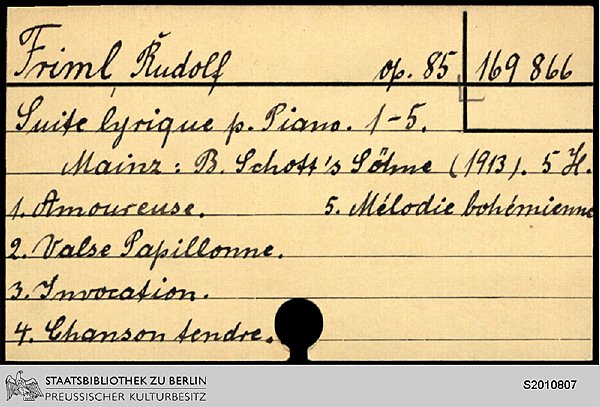 Friml, Rudolf op. 85 169 866
Suite lyrique p. Piano. 1-5.
Mainz: B. Schott's Söhne (1913). 5 H.
1. Amoureuse. 5. Mélodie bohémienne
2. Valse Papillonne.
3. Invocation.
4. Chanson tendre.
STAATSBIBLIOTHEK ZU BERLIN
PREUSSISCHER KULTURBESITZ
S2010807